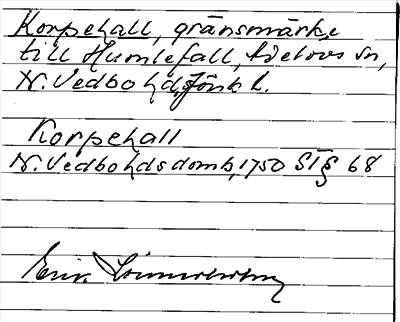 Korpehall, gränsmärke
till Humlefall, Adelövs sn,
N. Vedbo hd, Jönk l.
Korpehall
N. Vedbo hds domb, 1750 ST § 68
Eric